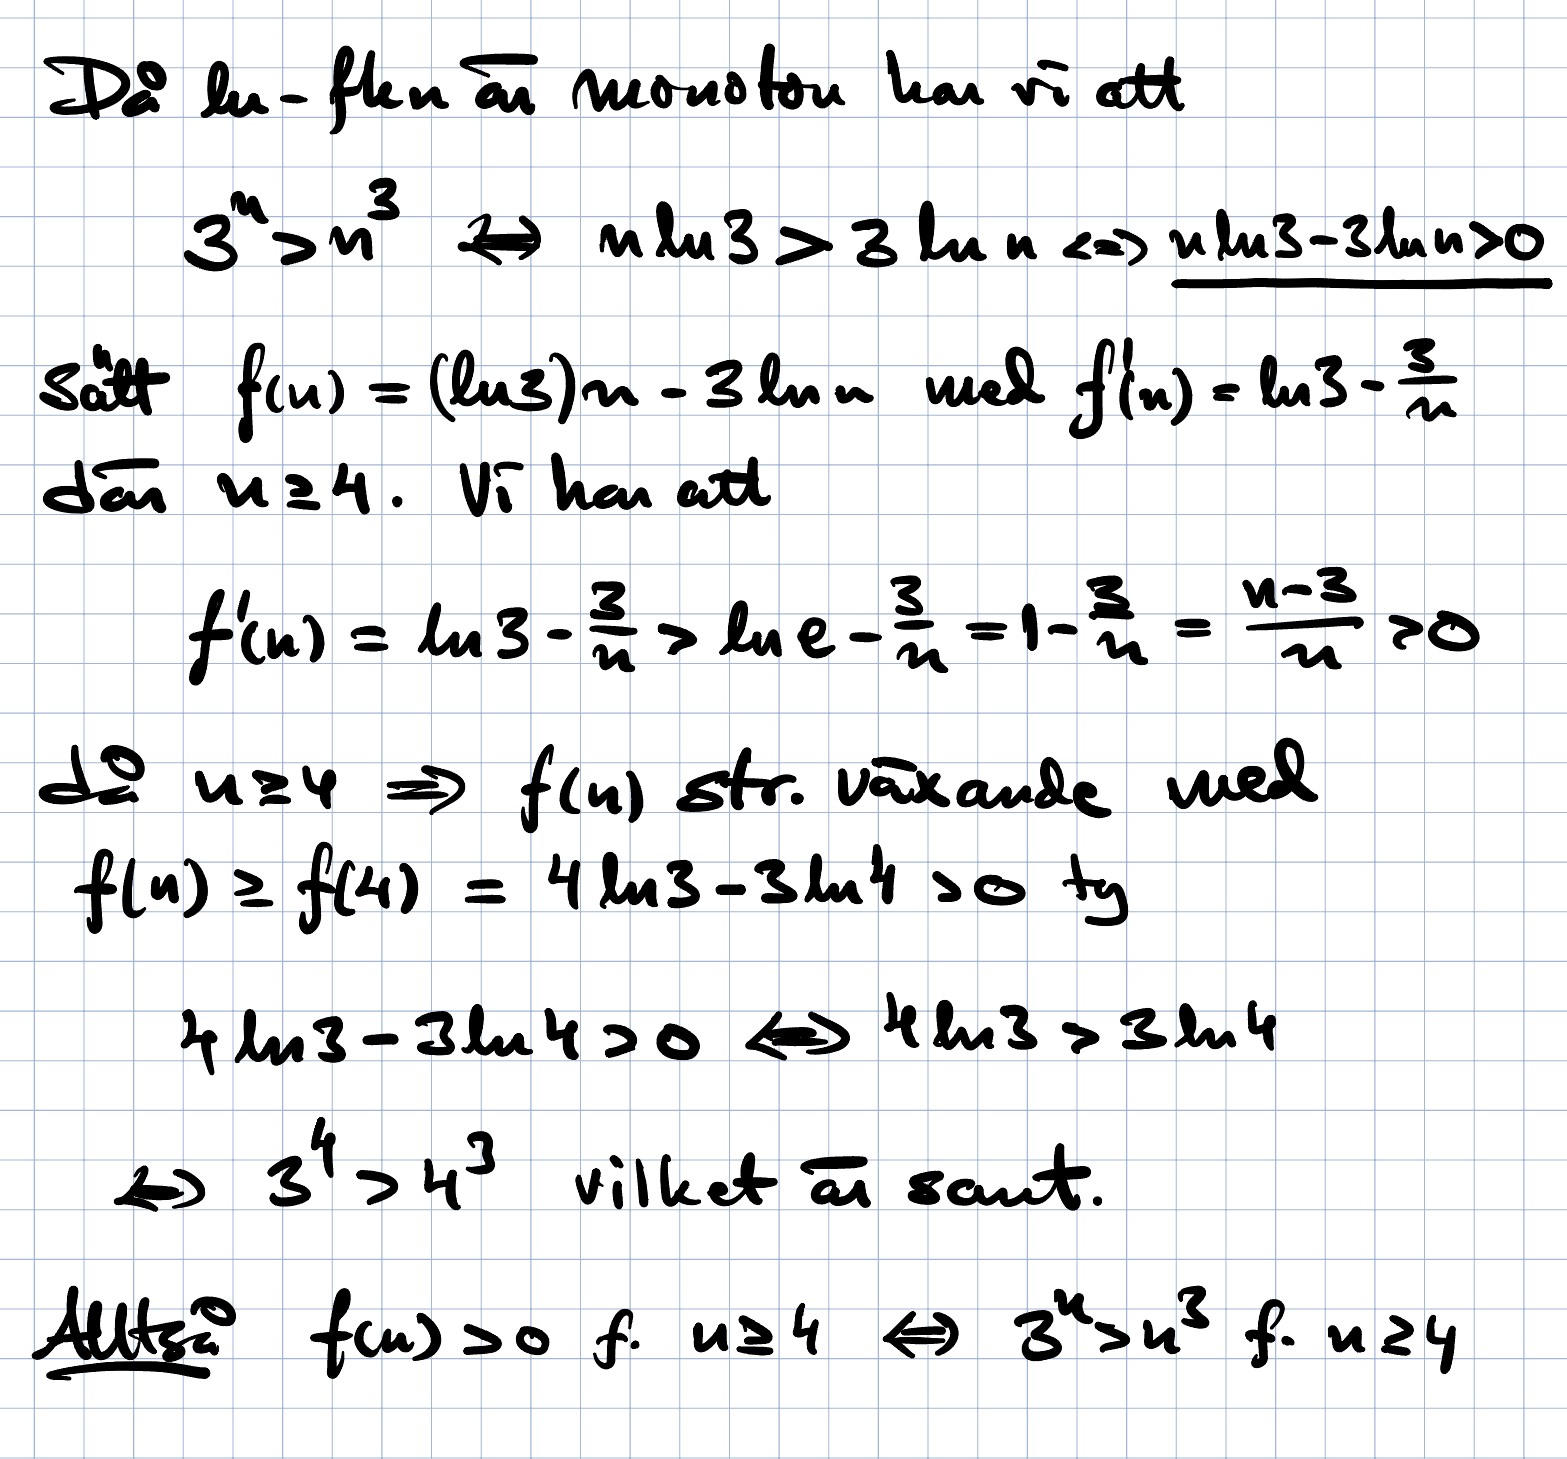 Då ln-fkn är monoton har vi att
3^n > n^3 ⇔ n ln 3 > 3 ln n ⇔ n ln 3 - 3 ln n > 0
Sätt f(n) = (ln 3)n - 3 ln n med f'(n) = ln 3 - 3/n
där n ≥ 4. Vi har att
f'(n) = ln 3 - 3/n > ln e - 3/n = 1 - 3/n = (n-3)/n > 0
då n ≥ 4 ⇒ f(n) str. växande med
f(n) ≥ f(4) = 4 ln 3 - 3 ln 4 > 0 ty
4 ln 3 - 3 ln 4 > 0 ⇔ 4 ln 3 > 3 ln 4
⇔ 3^4 > 4^3 vilket är sant.
Alltså f(n) > 0 f. n ≥ 4 ⇔ 3^n > n^3 f. n ≥ 4